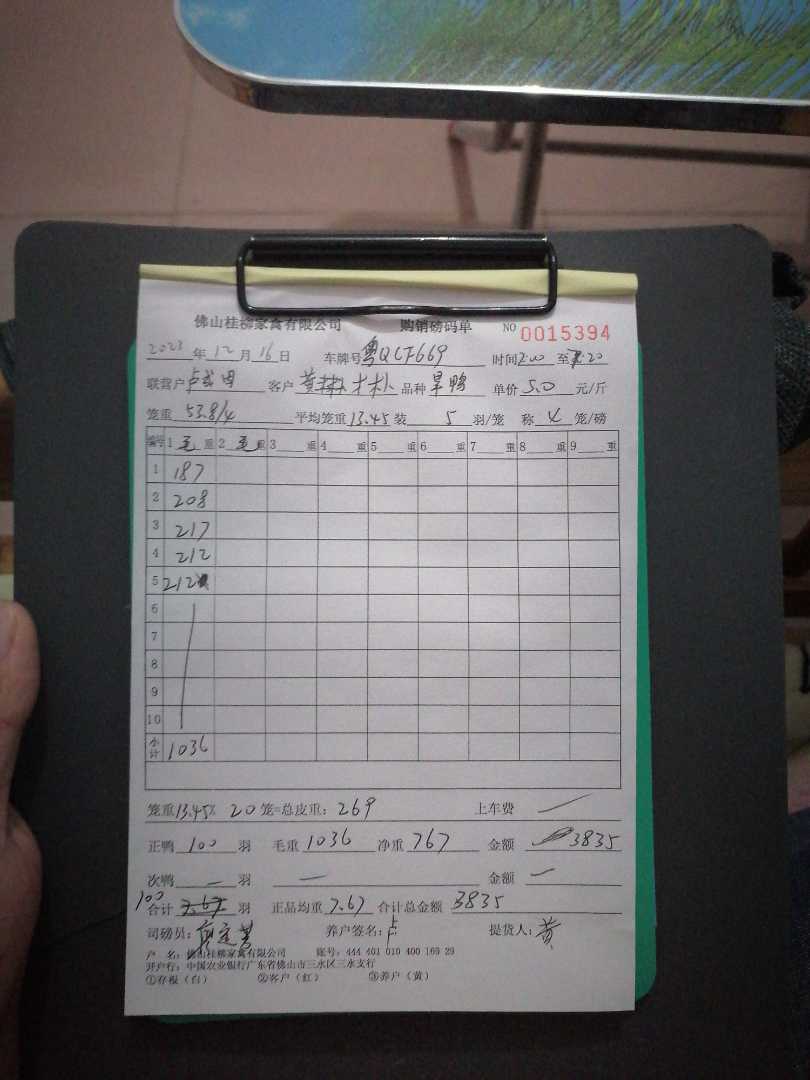 佛山桂柳家禽有限公司 购销磅码单 NO 0015394
2023 年 12 月 16 日 车牌号 粤QCF669 时间 2:00 至 2:20
联营户 卢 客户 黄 品种 旱鸭 单价 5.0 元/斤
笼重 53.8/4 平均笼重 13.45 装 5 羽/笼 称 4 笼/磅
编号 1 毛 重 2 毛 重 3 重 4 重 5 重 6 重 7 重 8 重 9 重
1 187
2 208
3 217
4 212
5 212
6
7
8
9
10
小计 1036
笼重 13.45 × 20 笼=总皮重: 269 上车费 —
正鸭 100 羽 毛重 1036 净重 767 金额 3835
次鸭 — 羽 — 金额 —
100
合计 7.67 羽 正品均重 7.67 合计总金额 3835
司磅员: 养户签名: 卢 提货人: 黄
户 名: 佛山桂柳家禽有限公司 账号: 444 401 010 400 169 29
开户行: 中国农业银行广东省佛山市三水区三水支行
①存根（白） ②客户（红） ③养户（黄）